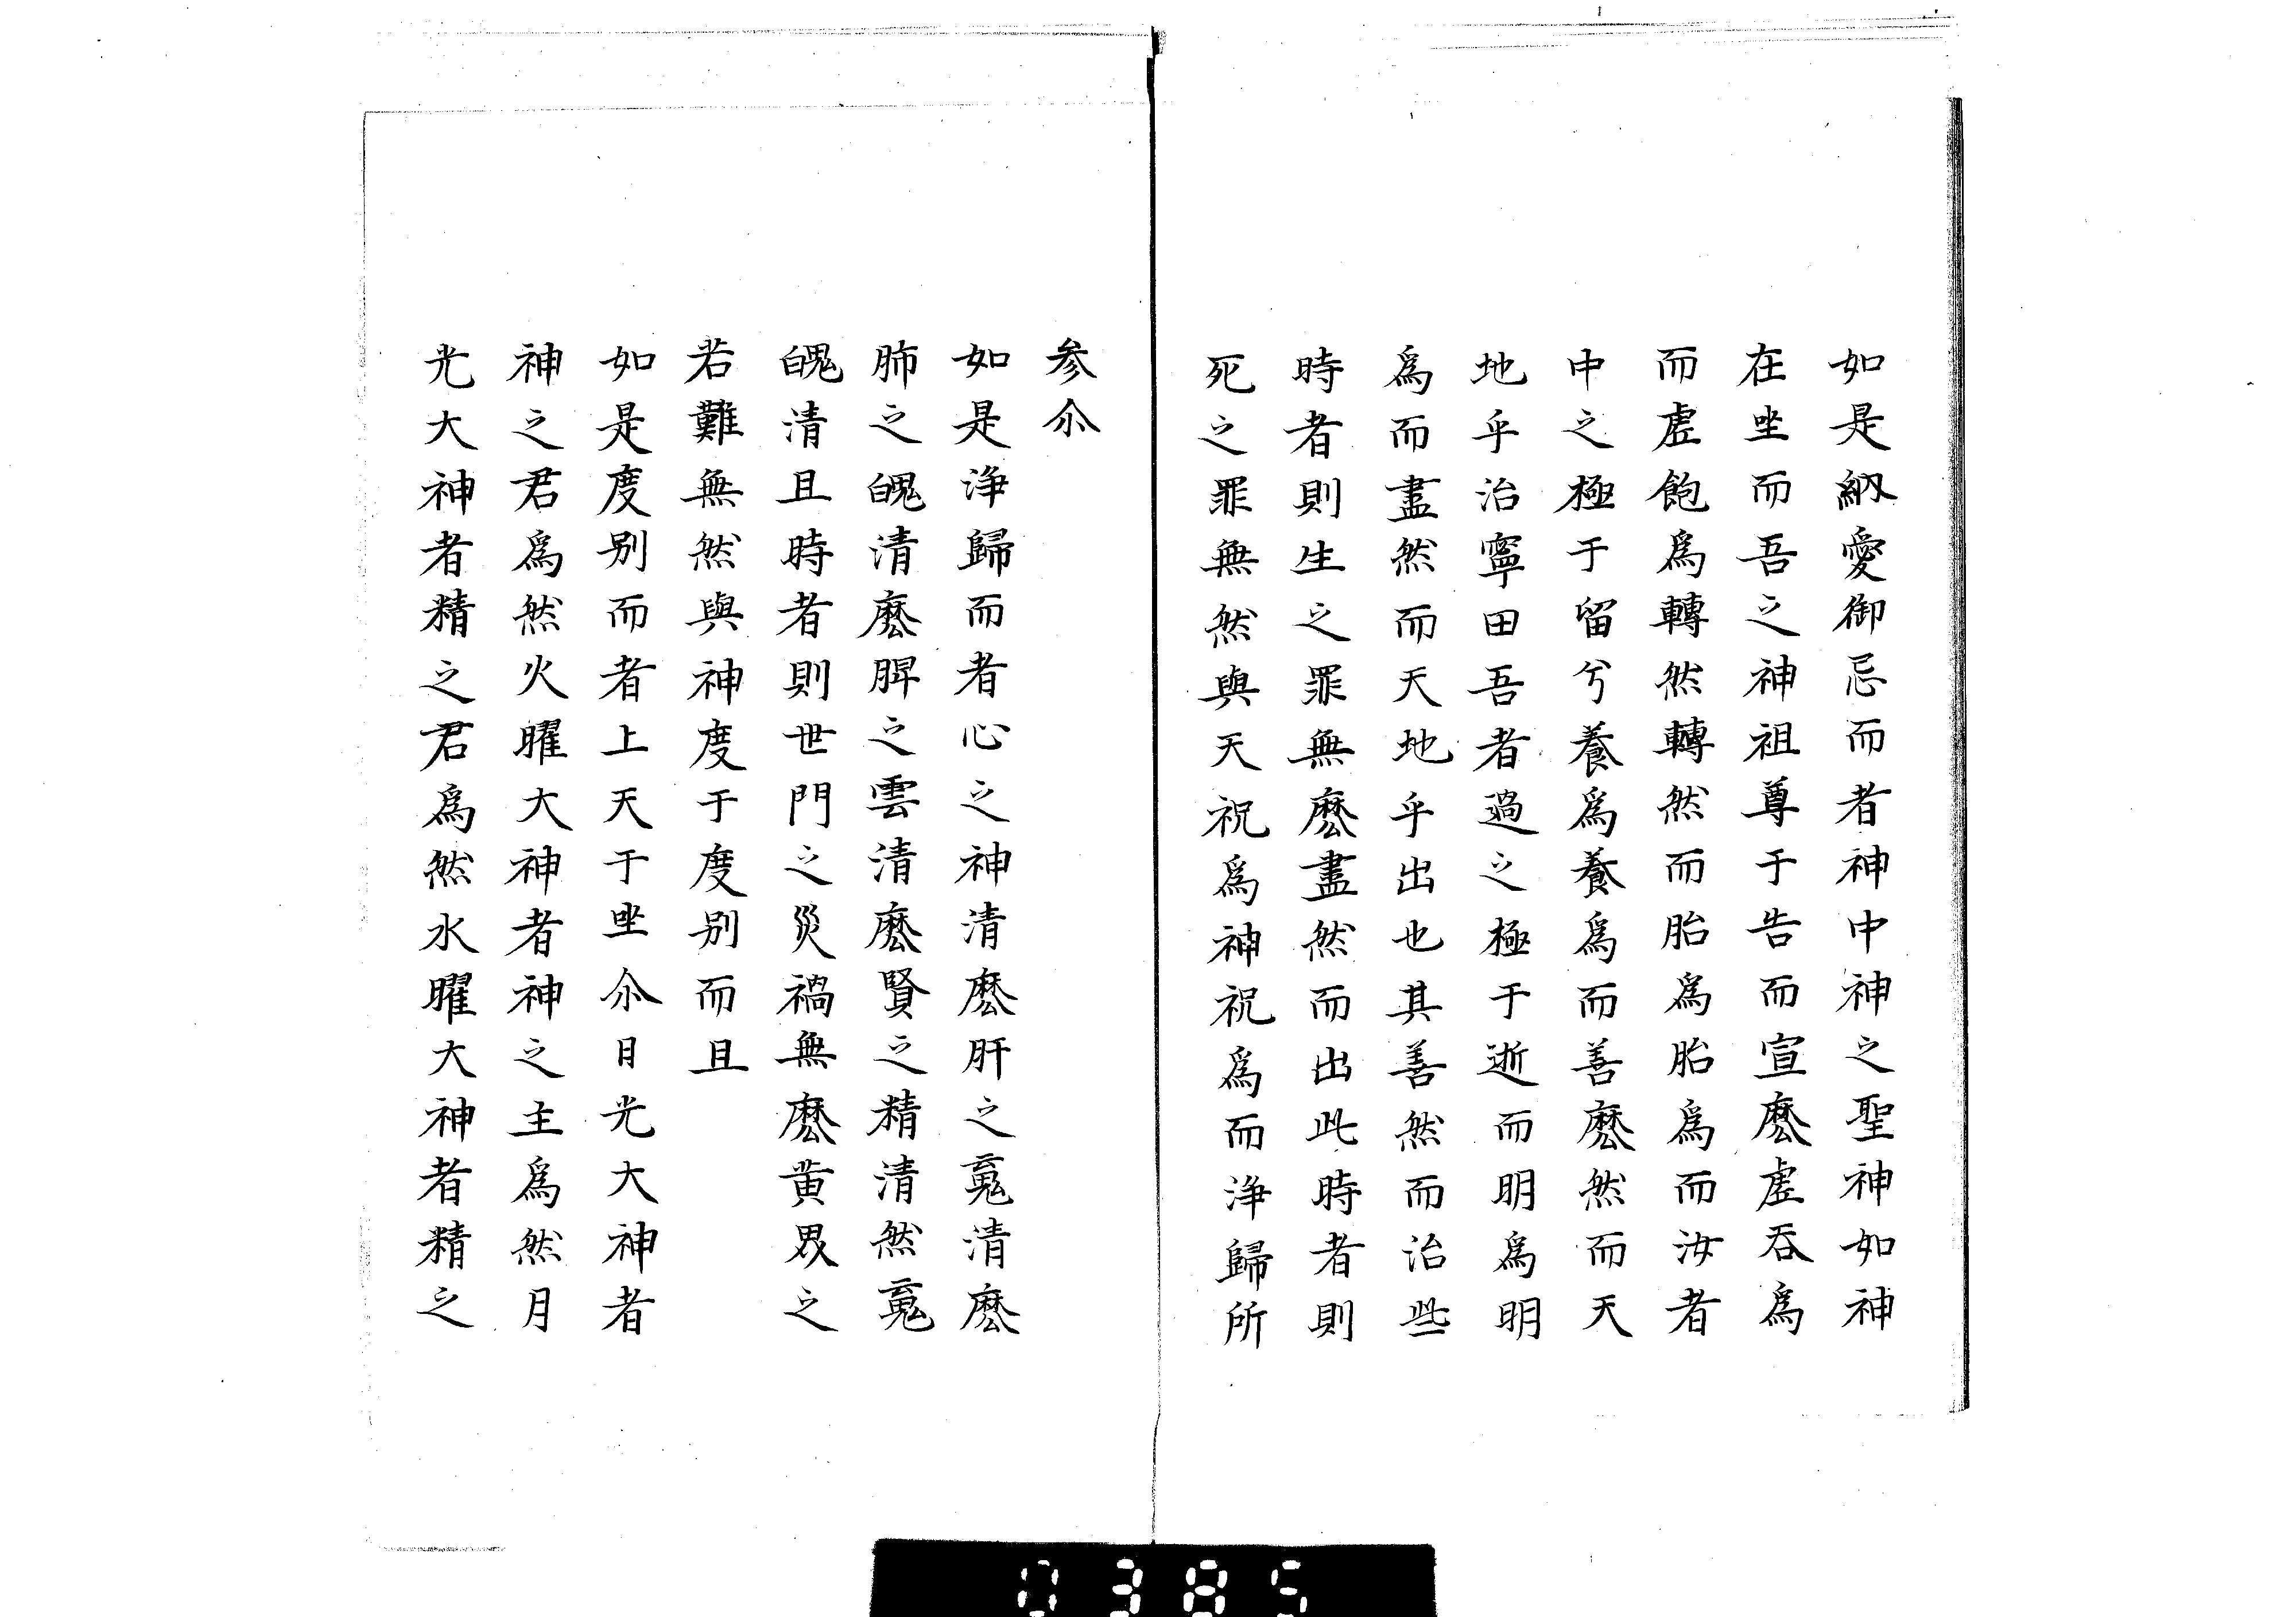 如是納愛御忌而者神中神之聖神如神
在坐而吾之神祖尊于告而宣麽虛吞爲
而虛飽爲轉然轉然而胎爲胎爲而汝者
中之極于留兮養爲養爲而善麽然而天
地乎治寧田吾者過之極于逝而明爲明
爲而盡然而天地乎出也其善然而治些
時者則生之罪無麽盡然而出此時者則
死之罪無然與天祝爲神祝爲而淨歸所
参尒
如是淨歸而者心之神清麽肝之䰟清麽
肺之魄清麽脾之雲清麽賢之精清然䰟
魄清且時者則世門之災禍無麽黄界之
若難無然與神度于度別而且
如是度別而者上天于坐尒日光大神者
神之君爲然火曜大神者神之主爲然月
光大神者精之君爲然水曜大神者精之
0385